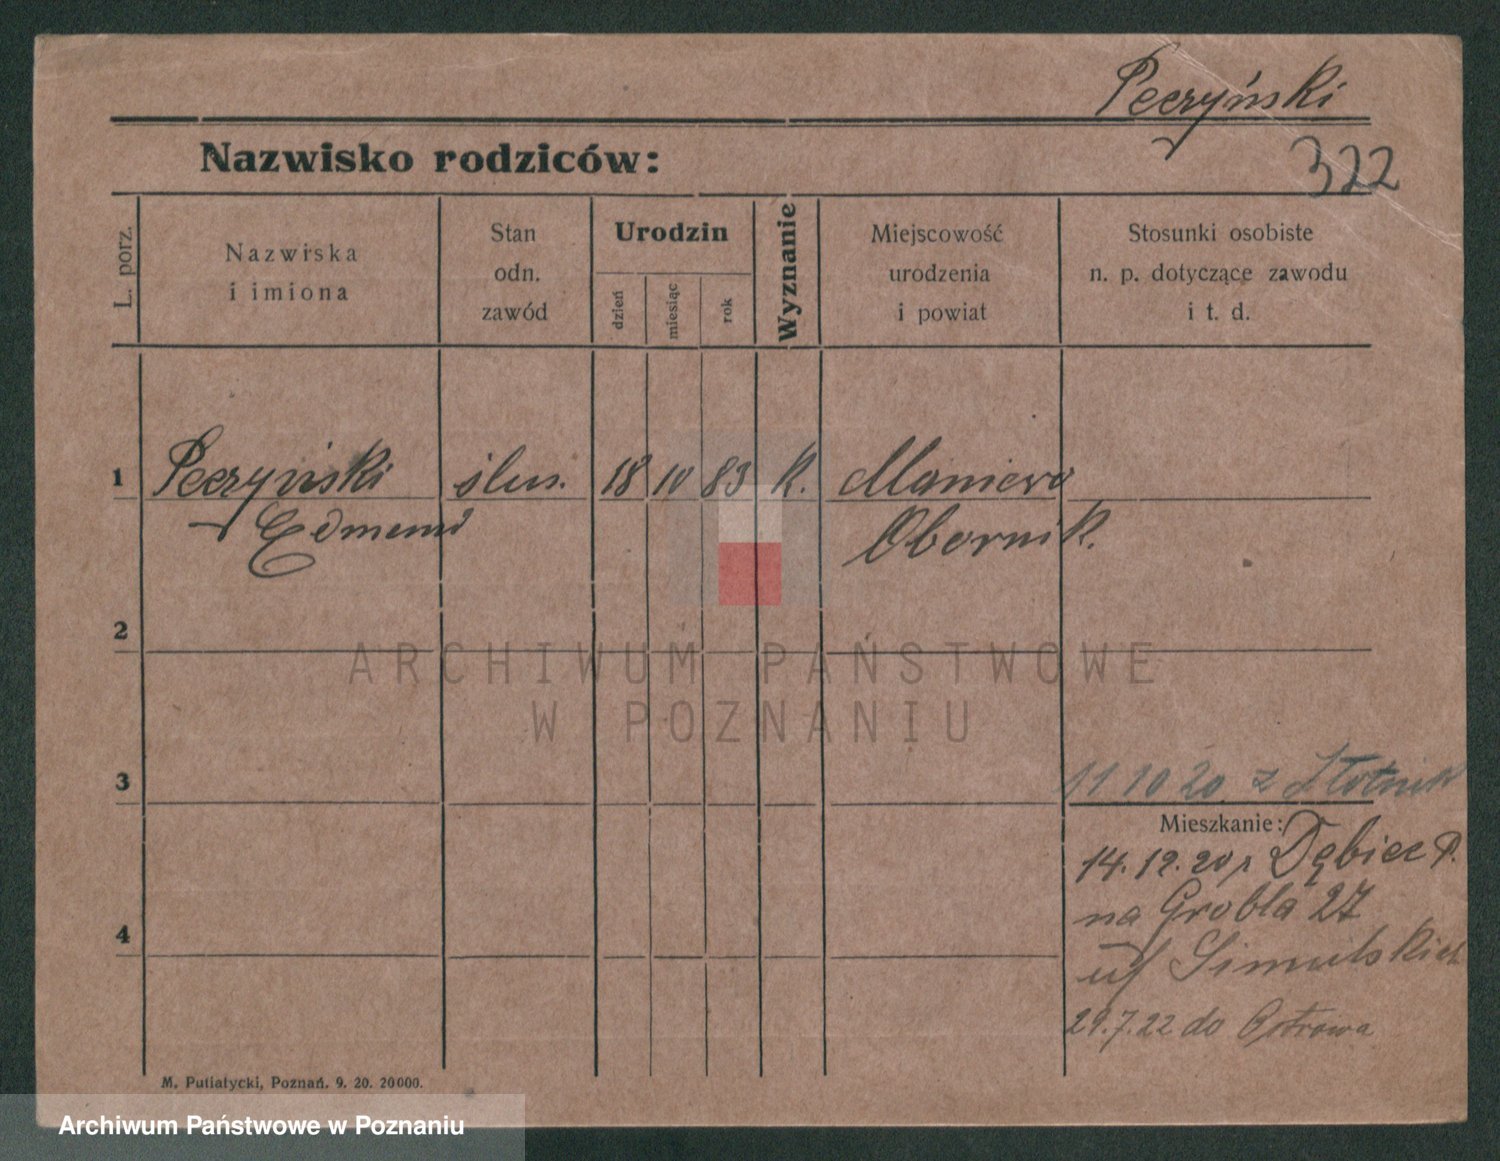 Peczyński
322
Nazwisko rodziców:
L. porz.
Nazwiska
i imiona
Stan
odn.
zawód
Urodzin
dzień
miesiąc
rok
Wyznanie
Miejscowość
urodzenia
i powiat
Stosunki osobiste
n. p. dotyczące zawodu
i t. d.
1 Peczyński ślus. 18 10 83 k. Maniewo
Edmund Obornik.
2
3
4
11 10 20 z Złotnik
Mieszkanie:
14.12.20 Dębiec
na Grobla 27
29.7.22 do Ostrowa
M. Putiatycki, Poznań. 9. 20. 20000.
ARCHIWUM PAŃSTWOWE
W POZNANIU
Archiwum Państwowe w Poznaniu